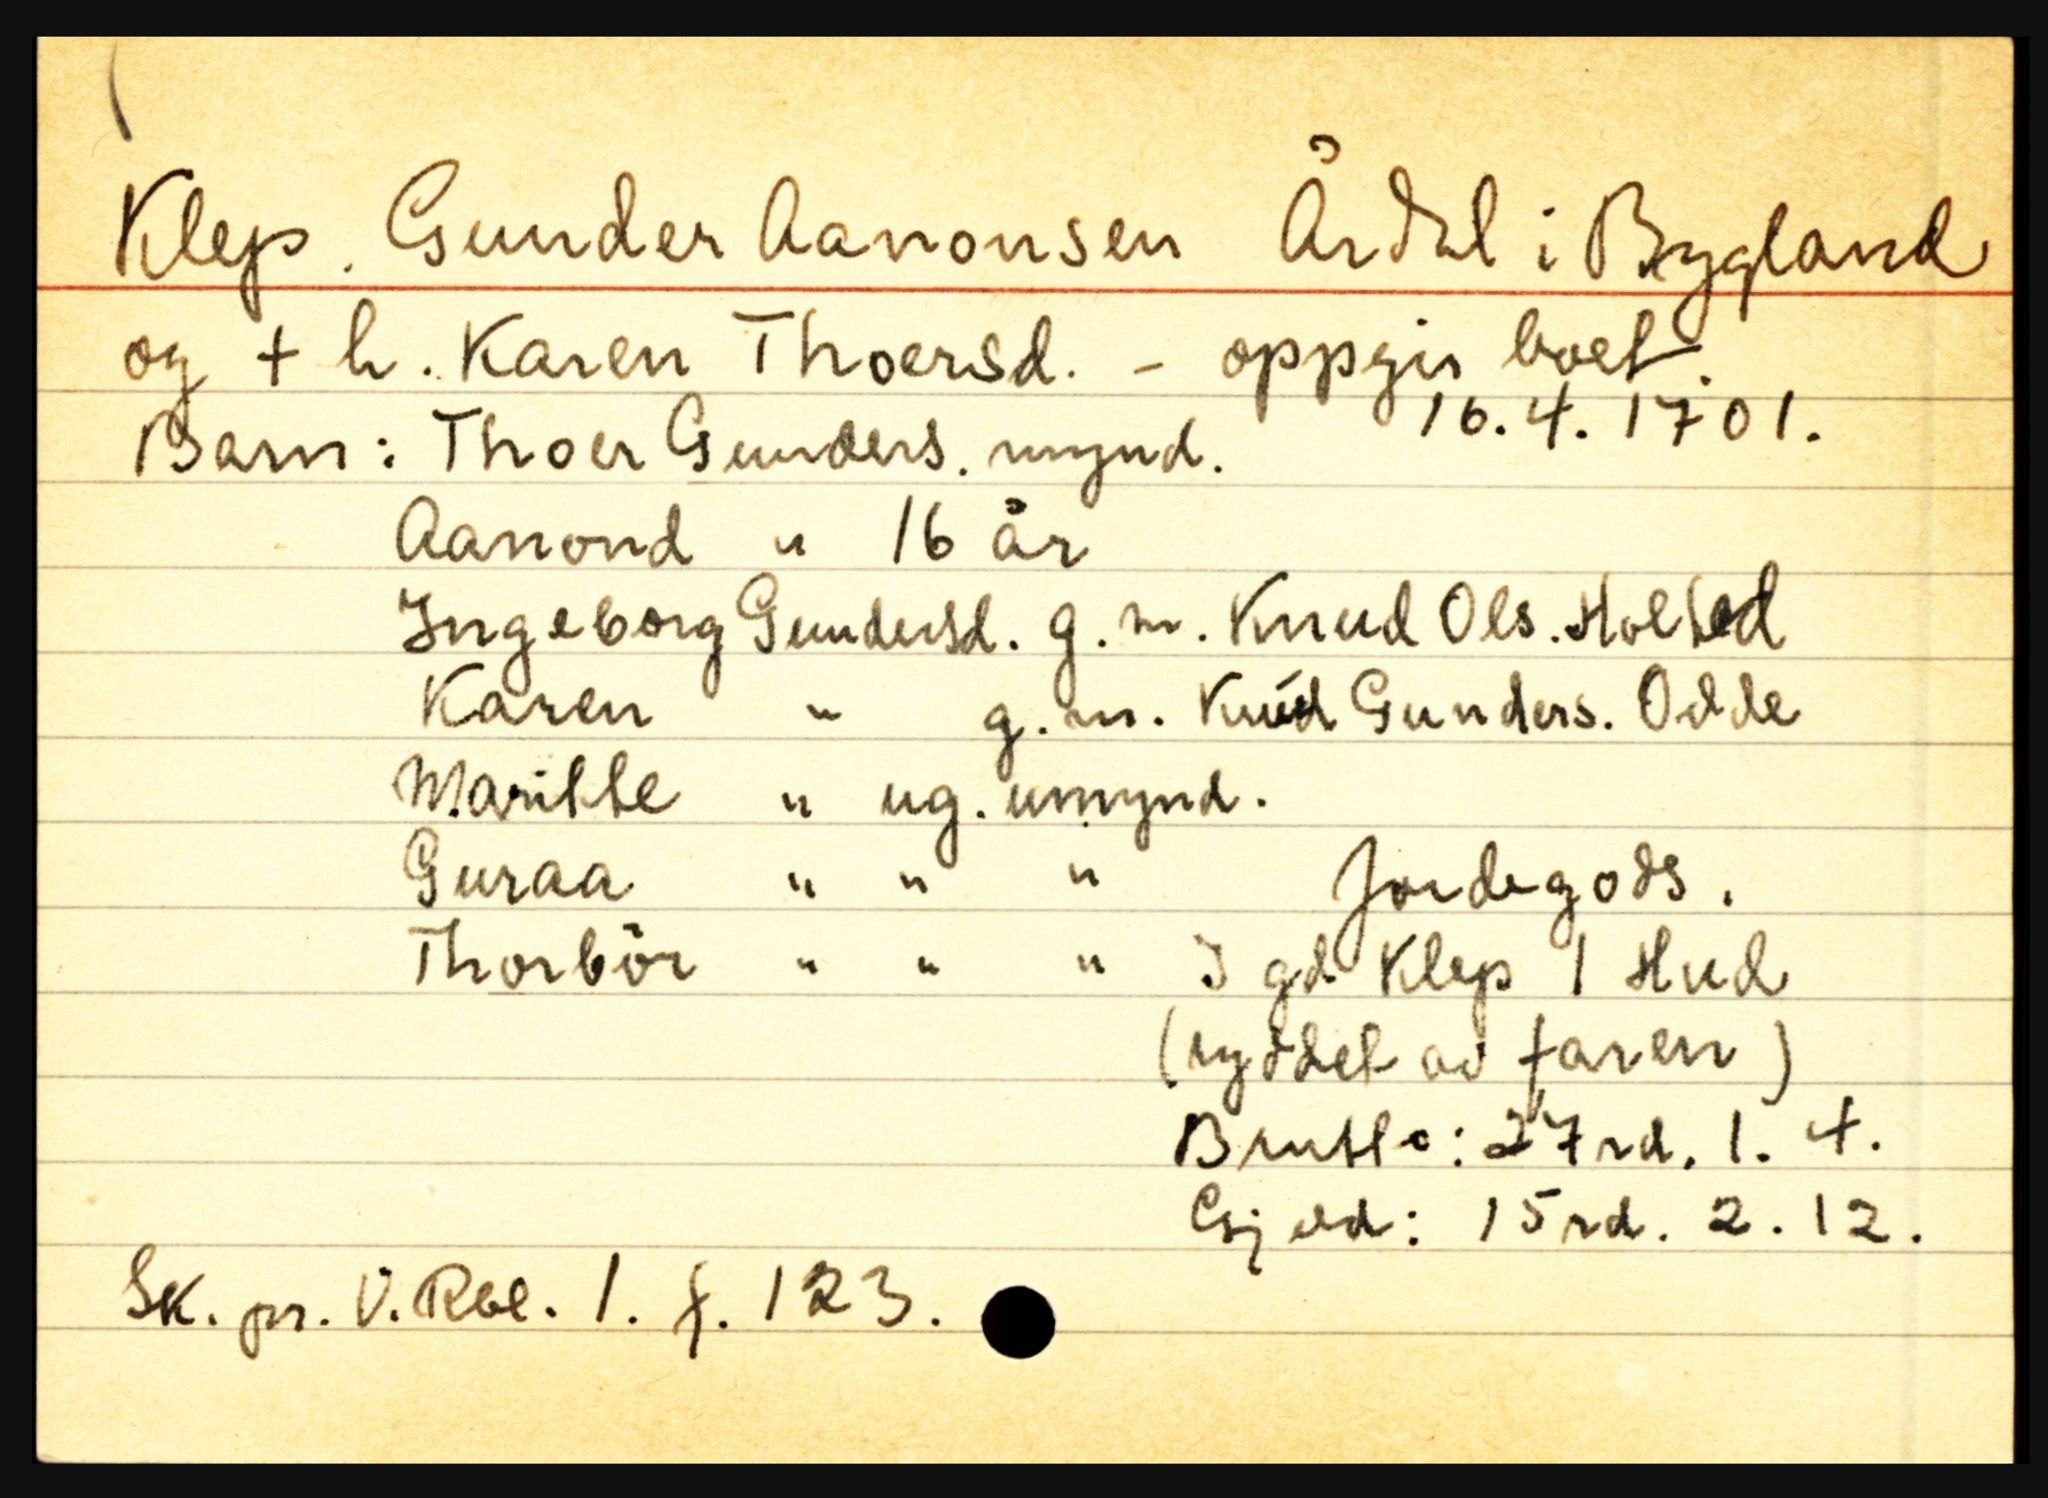 Klep. Gunder Aanonsen Årdal i Bygland
og + h. Karen Thoersd. - oppgir boet.
16.4.1701.
Barn: Thoer Gunders. mynd.
Aanond " 16 år
Ingeborg Gundersd. g.m. Knud Ols.
Karen " g.m. Knud Gunders. Odde
Maritte " ug. umynd.
Guraa " " "
Thorbör " " "
Jordegods.
I gd. Klep 1 Hud
(ryddet av faren)
Brutto: 27 rd. 1. 4.
Gjeld: 15 rd. 2. 12.
Sk. pr. V. Rbl. 1. f. 123.